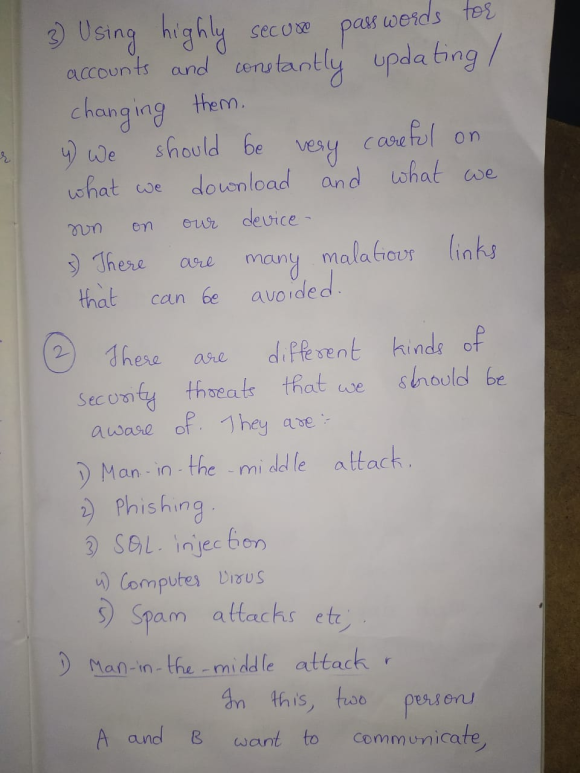 3) Using highly secure passwords for
accounts and constantly updating/
changing them.
4) We should be very careful on
what we download and what we
run on our device -
5) There are many malatious links
that can be avoided.
2 There are different kinds of
security threats that we should be
aware of. They are :-
1) Man-in-the-middle attack.
2) Phishing.
3) SQL. injection
4) Computer Virus
5) Spam attacks etc;.
1) Man-in-the-middle attack .
In this, two persons
A and B want to communicate,